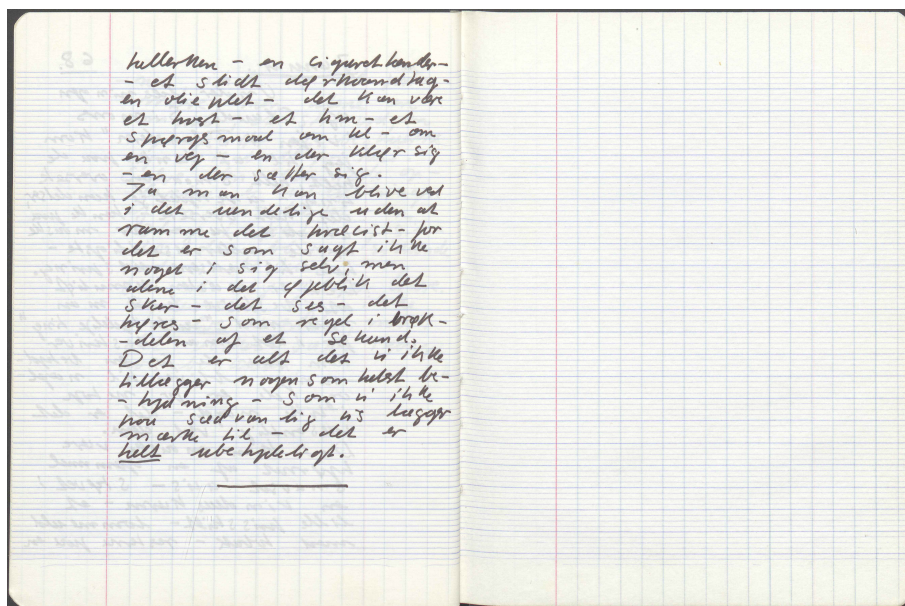 tallerken – en cigarettænder–
– et slidt dørhåndtag–
en olieplet – det kan være
et host – et hm – et
spørgsmaal om kl – om
en vej – en der klør sig
– en der sætter sig.
Ja man kan blive ved
i det uendelige uden at
ramme det præcist – for
det er som sagt ikke
noget i sig selv, men
alene i det øjeblik det
sker – det ses – det
høres – som regel i brøk–
–delen af et sekund.
Det er alt det vi ikke
tillægger nogen som helst be–
–tydning – som vi ikke
paa sædvanlig vis lægger
mærke til – det er
helt ubetydeligt.